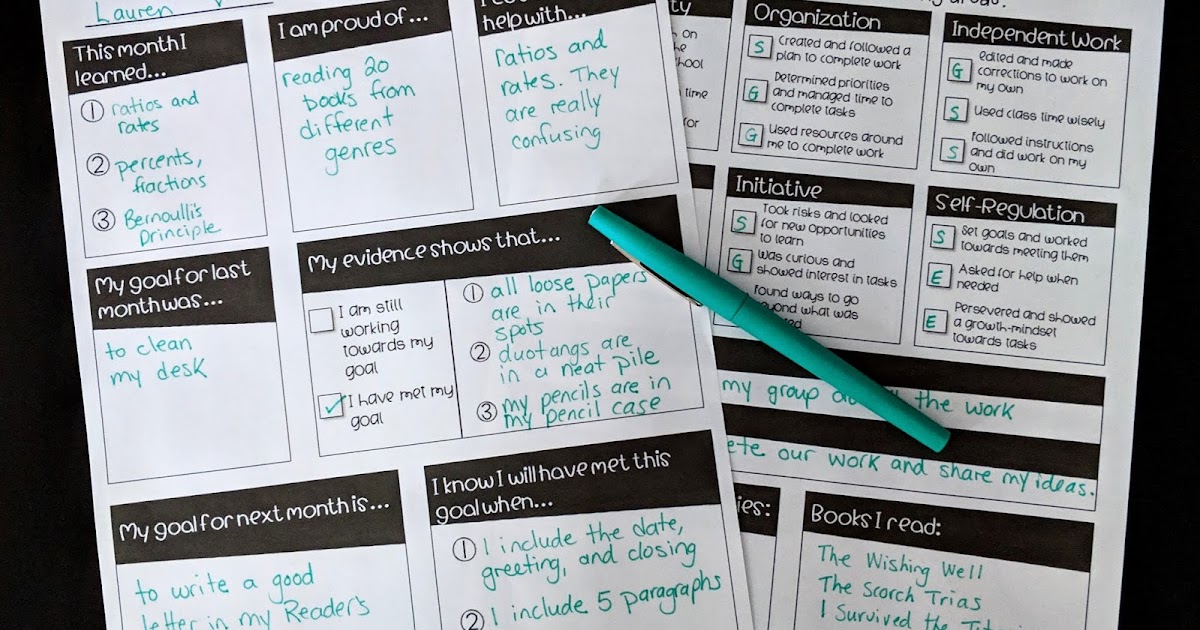 Lauren
This month I
learned...
① ratios and
rates
② percents,
fractions
③ Bernoulli's
Principle
I am proud of...
reading 20
books from
different
genres
help with...
ratios and
rates. They
are really
confusing
My goal for last
month was...
to clean
my desk
My evidence shows that...
I am still
working
towards my
goal
✓ I have met my
goal
① all loose papers
are in their
spots
② duotangs are
in a neat pile
③ my pencils are in
my pencil case
My goal for next month is...
to write a good
letter in my Reader's
I know I will have met this
goal when...
① I include the date,
greeting, and closing
② I include 5 paragraphs
on
time
Organization
S Created and followed a
plan to complete work
G Determined priorities
and managed time to
complete tasks
G Used resources around
me to complete work
Independent Work
G edited and made
corrections to work on
my own
S Used class time wisely
S followed instructions
and did work on my
own
Initiative
S Took risks and looked
for new opportunities
to learn
G was curious and
showed interest in tasks
found ways to go
beyond what was
Self-Regulation
S set goals and worked
towards meeting them
E Asked for help when
needed
E Persevered and showed
a growth-mindset
towards tasks
my group the work
our work and share my ideas.
Books I read:
The Wishing Well
The Scorch Trias
I Survived the